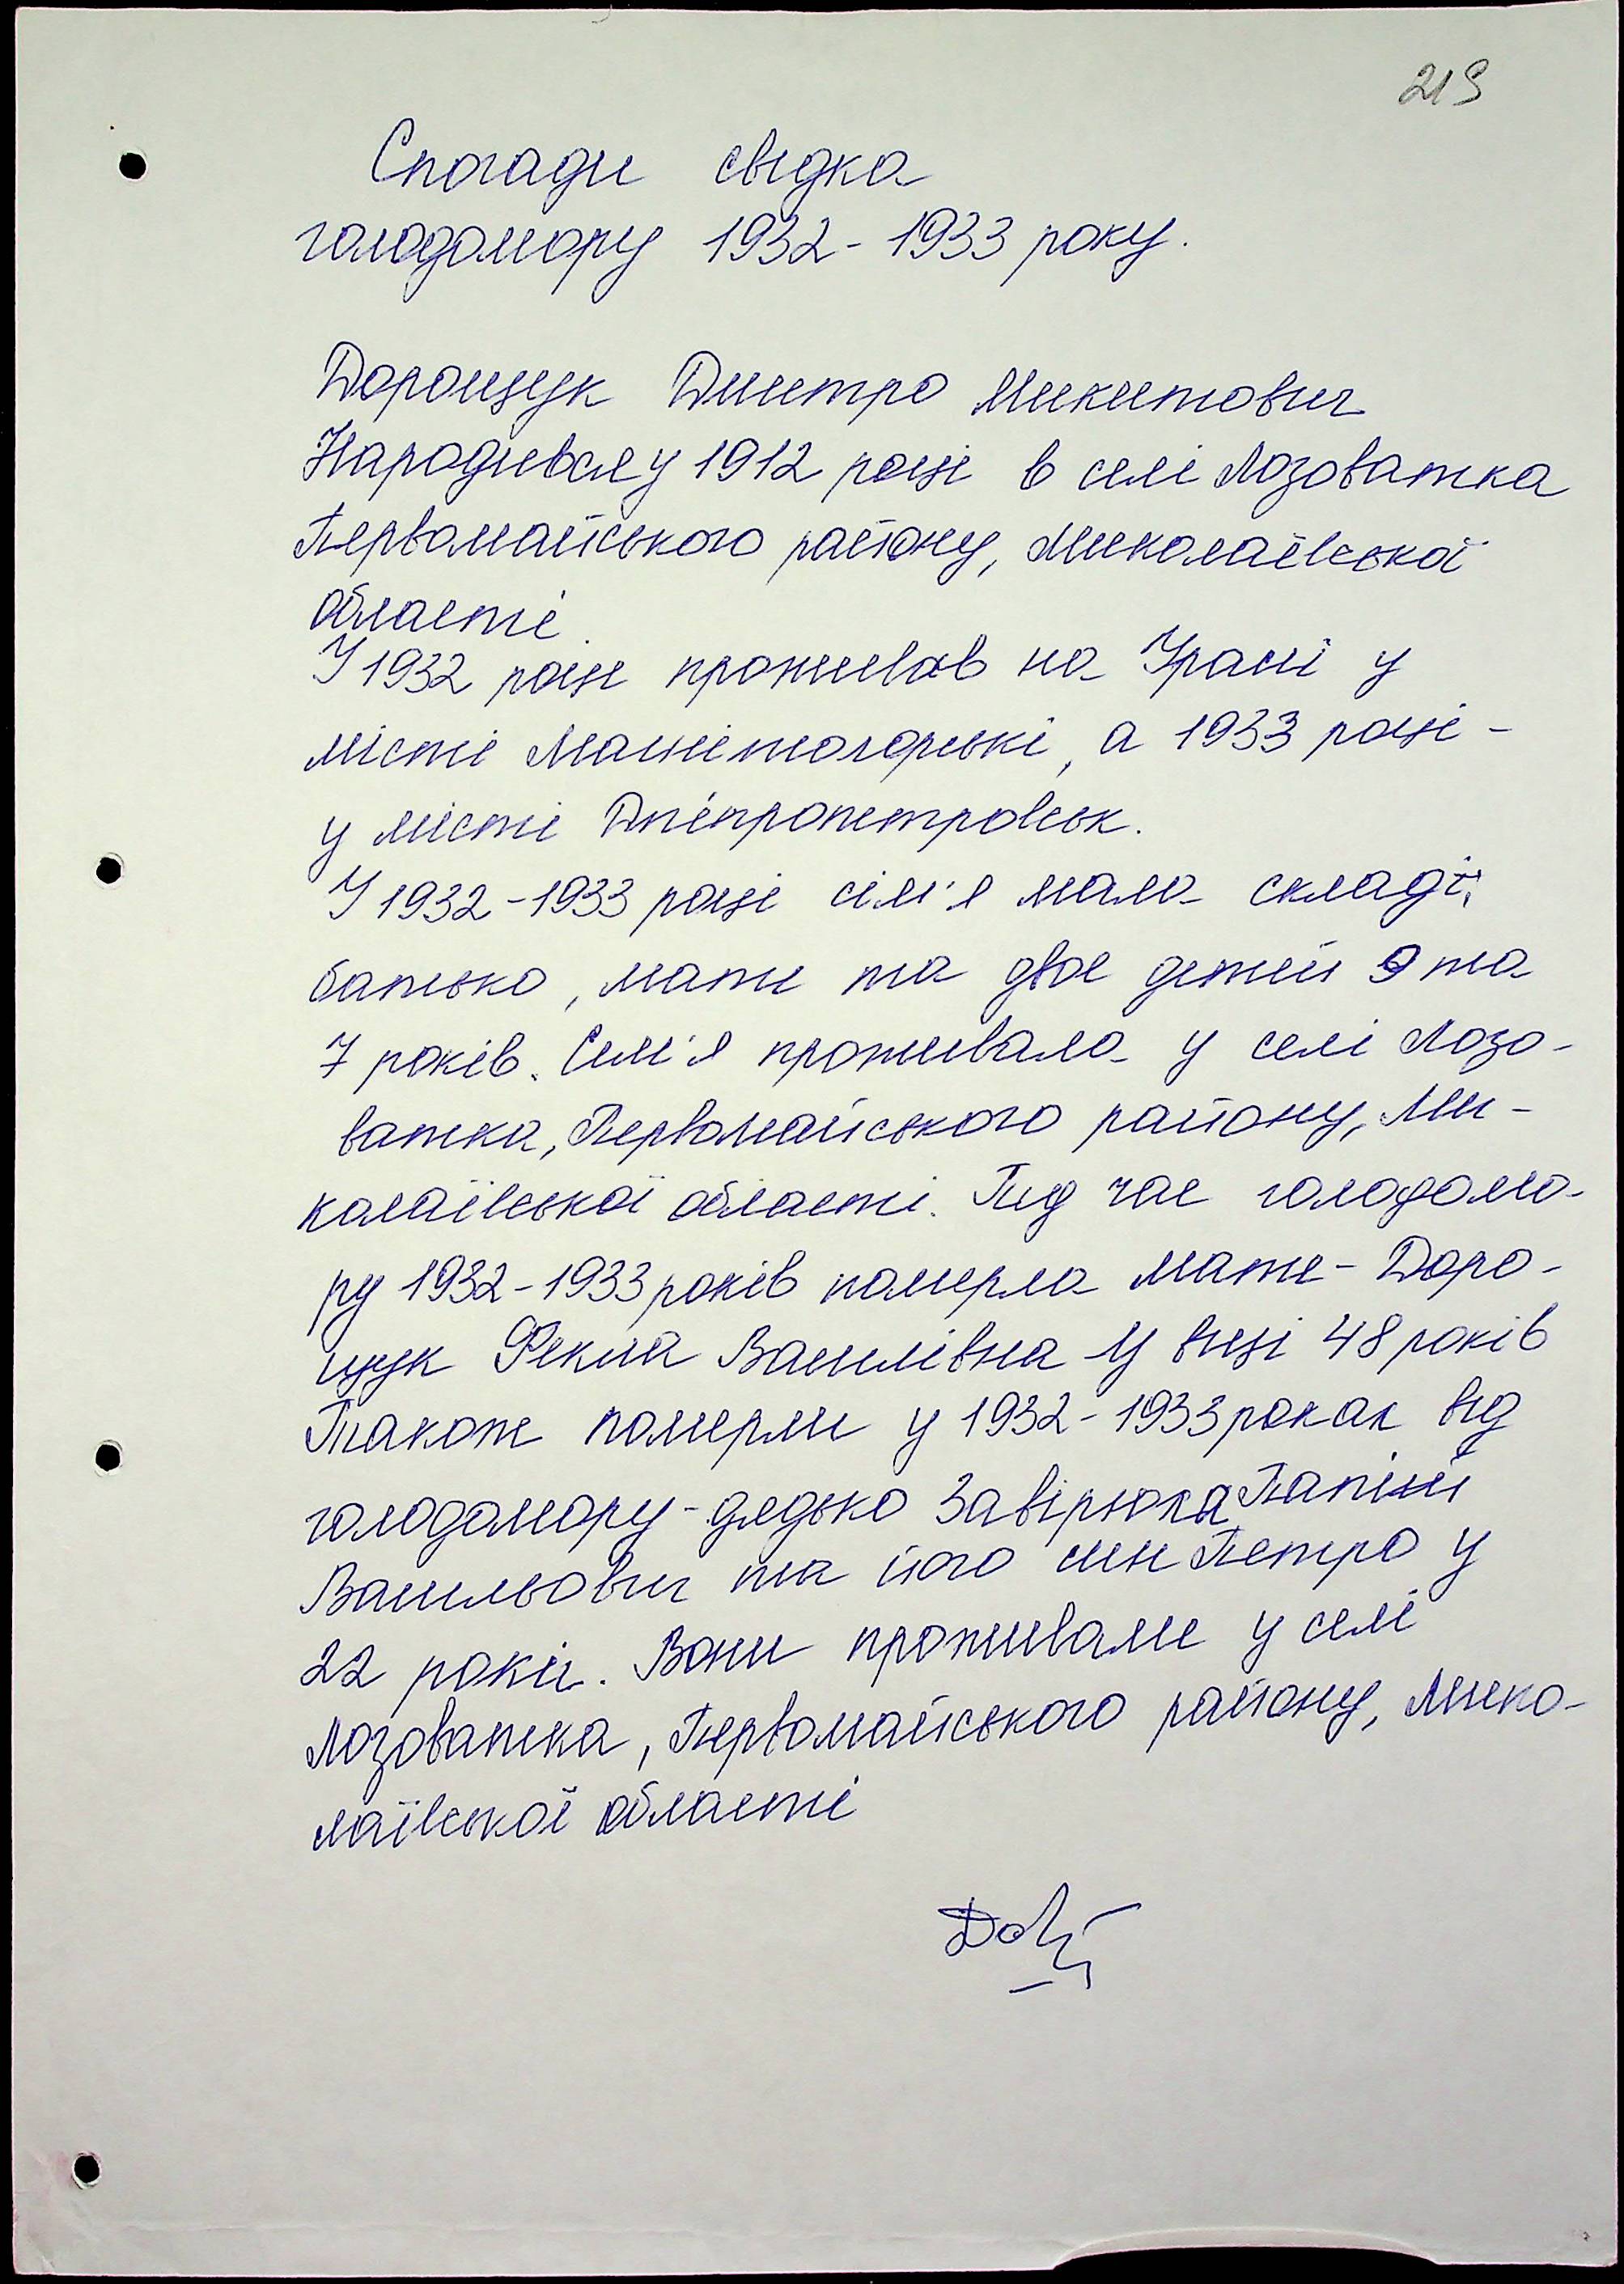 219
Спогади свідка
голодомору 1932-1933 року.
Дорощук Дмитро Микитович
Народився у 1912 році в селі Лозоватка
Первомайського району, Миколаївської
області.
У 1932 році проживав на Уралі у
місті Магнітогорські, а 1933 році -
у місті Дніпропетровськ.
У 1932-1933 році сім'я мала складі:
батько, мати та двоє дітей 9 та
7 років. Сім'я проживала у селі Лозо-
ватка, Первомайського району, Ми-
калаївської області. Під час голодомо-
ру 1932-1933 років померла мати - Доро-
щук Фекла Василівна у віці 48 років
Також померли у 1932-1933 роках від
голодомору - дядько Завірюха
Васильович та його син Петро у
22 роки. Вони проживали у селі
Лозоватка, Первомайського району, Мико-
лаївської області